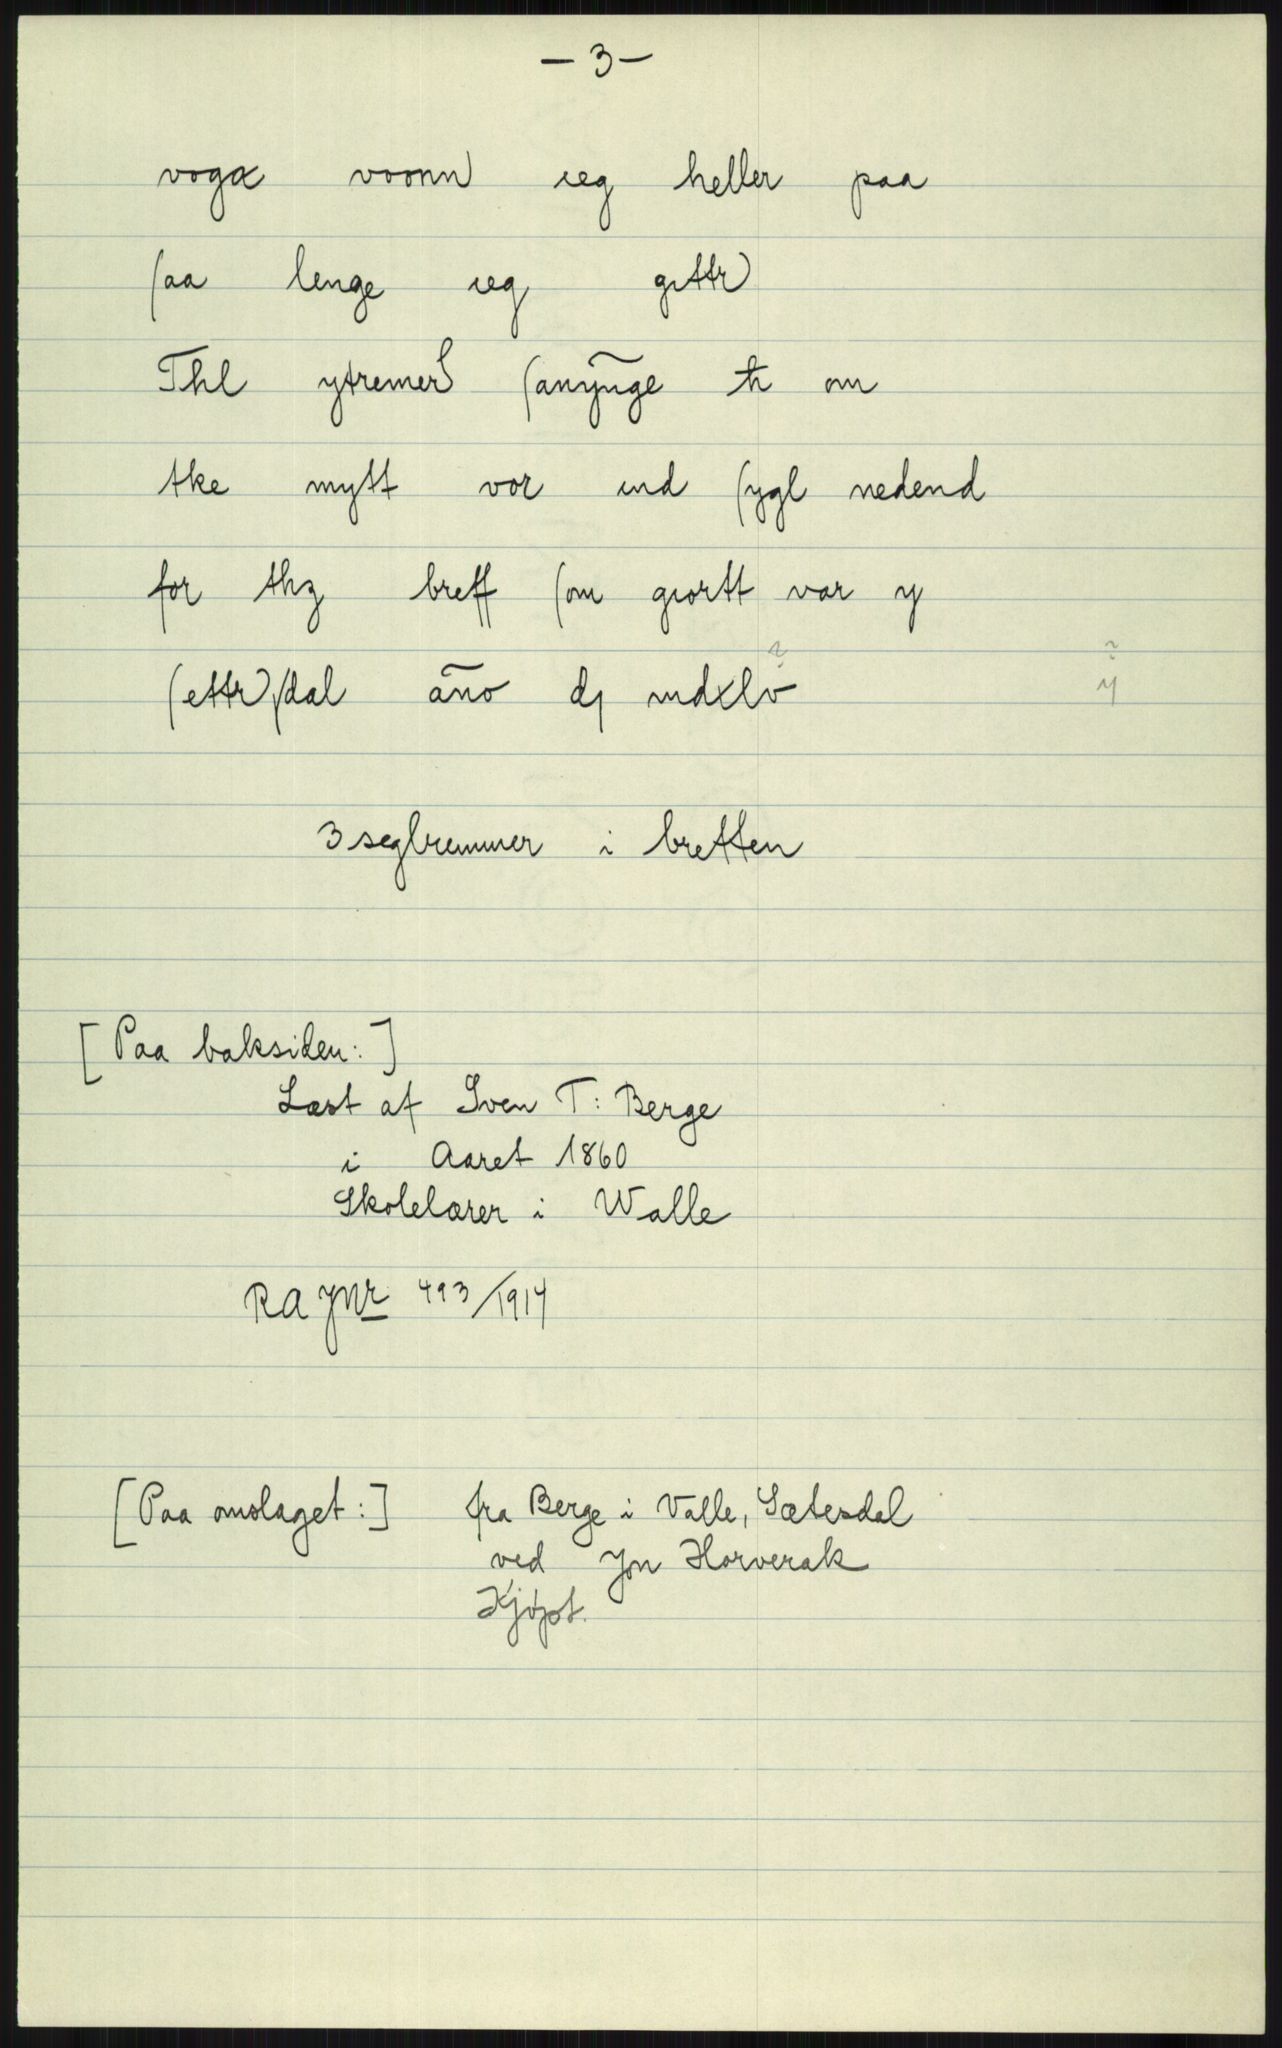 — 3 —
vogx voonn ieg heller paa
ſaa lenge ieg gittr
Thl ytremerß ſanӯnge th om
tke mytt vor ind ſygl nedend
for thz breff ſom giortt var y
ſettrſdal āno dj mdxlv
3 seglremmer i bretten
[Paa baksiden:]
Læst af Sven T: Berge
i Aaret 1860
Skolelærer i Walle
RA JNr 493/1914
[Paa omslaget:] fra Berge i Valle, Sætesdal
ved Jon Horverak
Kjøpt.